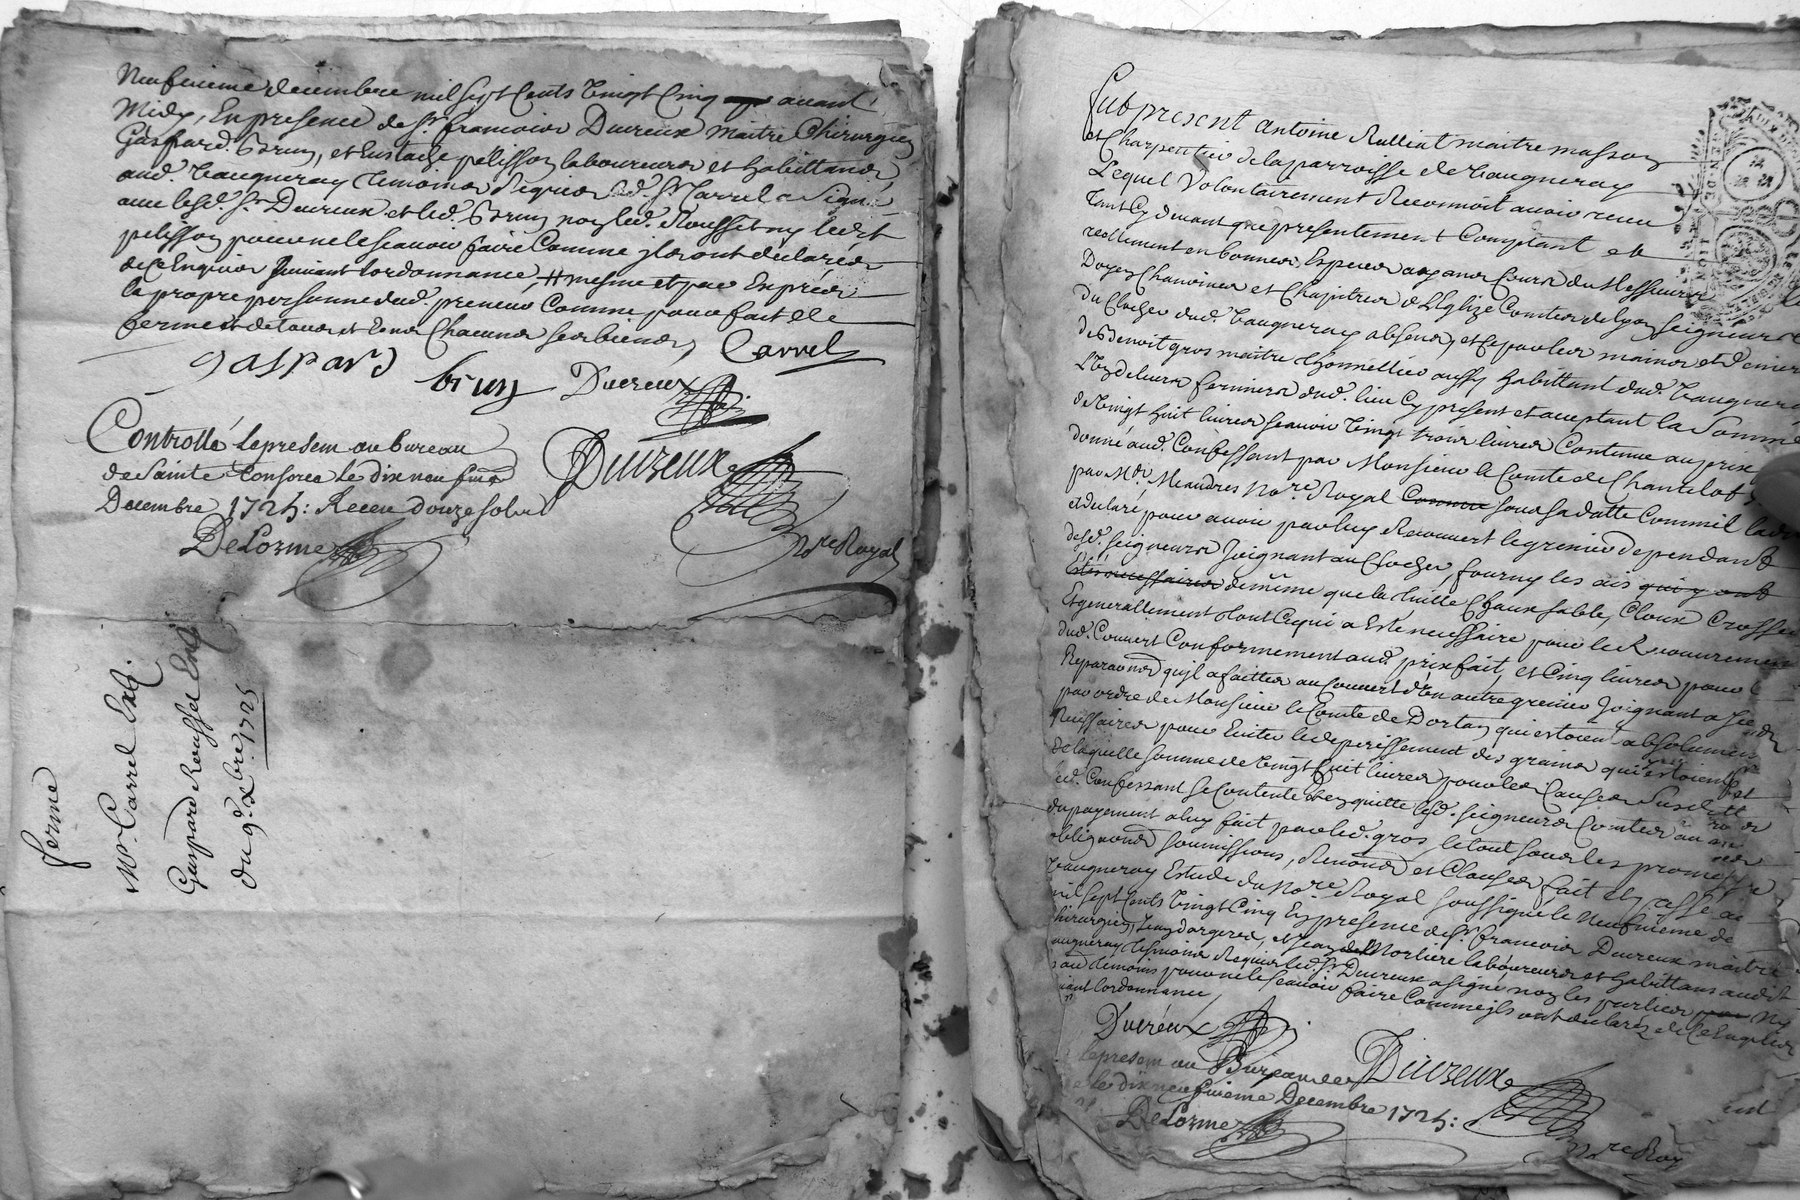 Neufvieme decembre mil sept Cents Vingt Cinq avant
Midy, En presence de Sr. francoier Ducreux maitre Chirurgien
Gaspard Brun, et Eustache pelisson laboureurs et habittans
aud. Vaugneray temoins Requis led. Sr. Carrel a Signé
avec led. Sr. Ducreux et led. Brun non led. Rousset ny led.
pelisson pour ne le scavoir faire Comme ils ont déclarés
de ce Enquis suivant lordonnance, # mesme et par Exprés
la propre personne dud. preneur Comme pour fait de
ferme et de tous et uns Chacuns ses biens, Carrel
gaspard brun Ducreux
Controllé le present au bureau
de Sainte Consorce Le dix neufvie
Decembre 1725: Receu douze sols
DeLorme
Ducreux
Nre Royal
ferme
Mr. Carrel
Gaspard Rousset
du 9e. Xbre 1725
Fut present antoine Rulliat maitre masson
et Charpentier de la parroisse de Vaugneray
Lequel Volontairement Reconnoit avoir receu
tant Cy devant que presentement Comptant et
reellement en bonnes Especes ayans Cours des Messieurs
Doyen Chanoines et Chapitres de L'Eglize Comtes de Lyon Seigneurs
du Clocher dud. Vaugneray absens, et Ce par les mains et deniers
de Benoit gros maitre aussy habittant dud. Vaugneray
L'un de leurs fermiers dud. lieu Cy present et acceptant la Somme
de Vingt huit livres scavoir Vingt trois livres Contenue au prix
donné aud. Confessant par Monsieur le Comte de Chantelot
par Me. Meandres Nore. Royal Comme sous sa datte Comm'il la
declaré pour avoir par luy Recouvert le grenier dependant
desd. Seigneurs Joignant au Clocher, fourny les ais qui y ont
Esté necessaires de même que la thuille Chaux sable, Cloux Crosses
Et generallement tout Ce qui a Esté necessaire pour le Recouvrement
dud. Couvert Conformement aud. prixfait, et Cinq livres pour
Reparaons qu'il a faittes au Couvert d'un autre grenier Joignant
par ordre de Monsieur le Comte de Dortan qui estoient absolument
Necessaires pour Eviter le deperissement des grains qui estoient
de laquelle somme de Vingt huit livres pour les Causes Susd.
led. Confessant se Contente et en quitte lesd. Seigneurs Comtes au
du payement a luy fait par led. gros le tout sous les promesses
obligaons soumissions, Renons et Clauses fait et passé
Vaugneray Estude du Nore Royal soussigné le Neufvieme de
mil sept Cents Vingt Cinq En presence de Sr. francois Ducreux maitre
Chirurgien, Jean dargere, et Jean Morliere laboureurs et habittans audit
Vaugneray temoins Requis led. Sr. Ducreux a signé non les parties ny
temoins pour ne le scavoir faire Comme ils ont declaré de ce Enquis
suivant lordonnance
Ducreux
Ducreux
le present au Bureau de
le dix neufvieme Decembre 1725:
DeLorme
Nre Roy